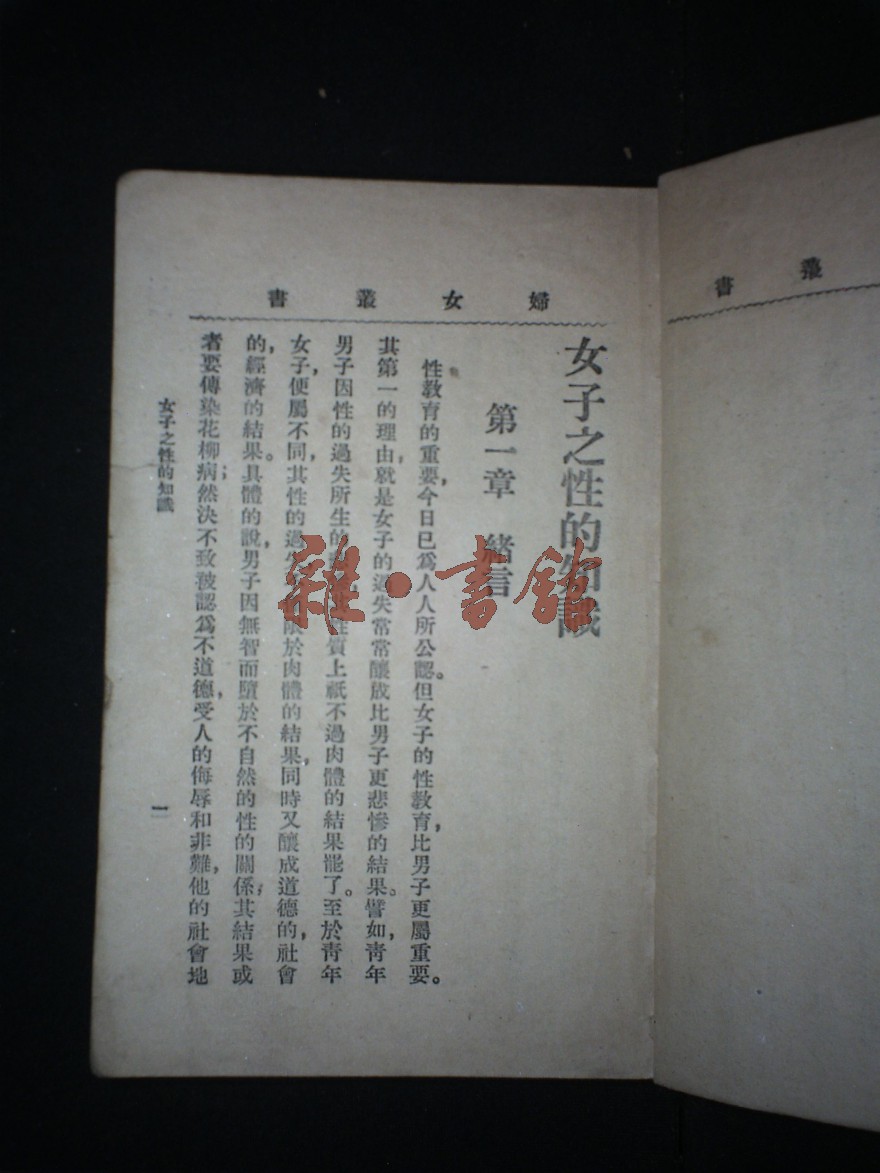 婦女叢書
女子之性的知識
第一章 緒言
性教育的重要,今日已爲人人所公認。但女子的性教育,比男子更屬重要。
其第一的理由,就是女子的過失常常釀成比男子更悲慘的結果。譬如,青年
男子因性的過失所生的 性質上祇不過肉體的結果罷了。至於青年
女子,便屬不同,其性的過失 限於肉體的結果,同時又釀成道德的,社會
的,經濟的結果。具體的說,男子因無智而墮於不自然的性的關係,其結果或
者要傳染花柳病;然決不致被認爲不道德,受人的侮辱和非難,他的社會地
女子之性的知識
一
叢書
雜·書館